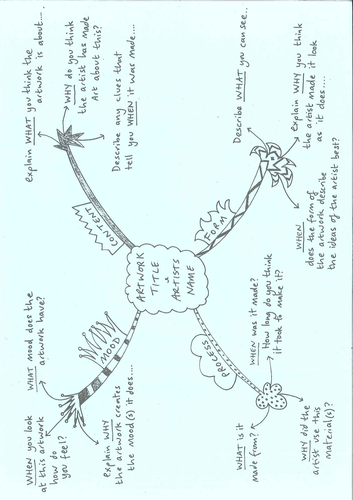 ARTWORK
TITLE
+
ARTISTS
NAME
CONTENT
Explain WHAT you think the
artwork is about....
WHY do you think
the artist has made
Art about this?
Describe any clues that
tell you WHEN it was made....
FORM
Describe WHAT you can see...
explain WHY you think
the artist made it look
as it does....
WHEN
does the form of
the artwork describe
the ideas of the artist best?
MOOD
WHAT mood does the
artwork have?
WHEN you look
at this artwork
how do
you feel?
explain WHY
the artwork creates
the mood(s) it does....
PROCESS
WHEN was it made?
How long do you think
it took to make it?
WHAT is it
made from?
WHY did the
artist use this
material(s)?